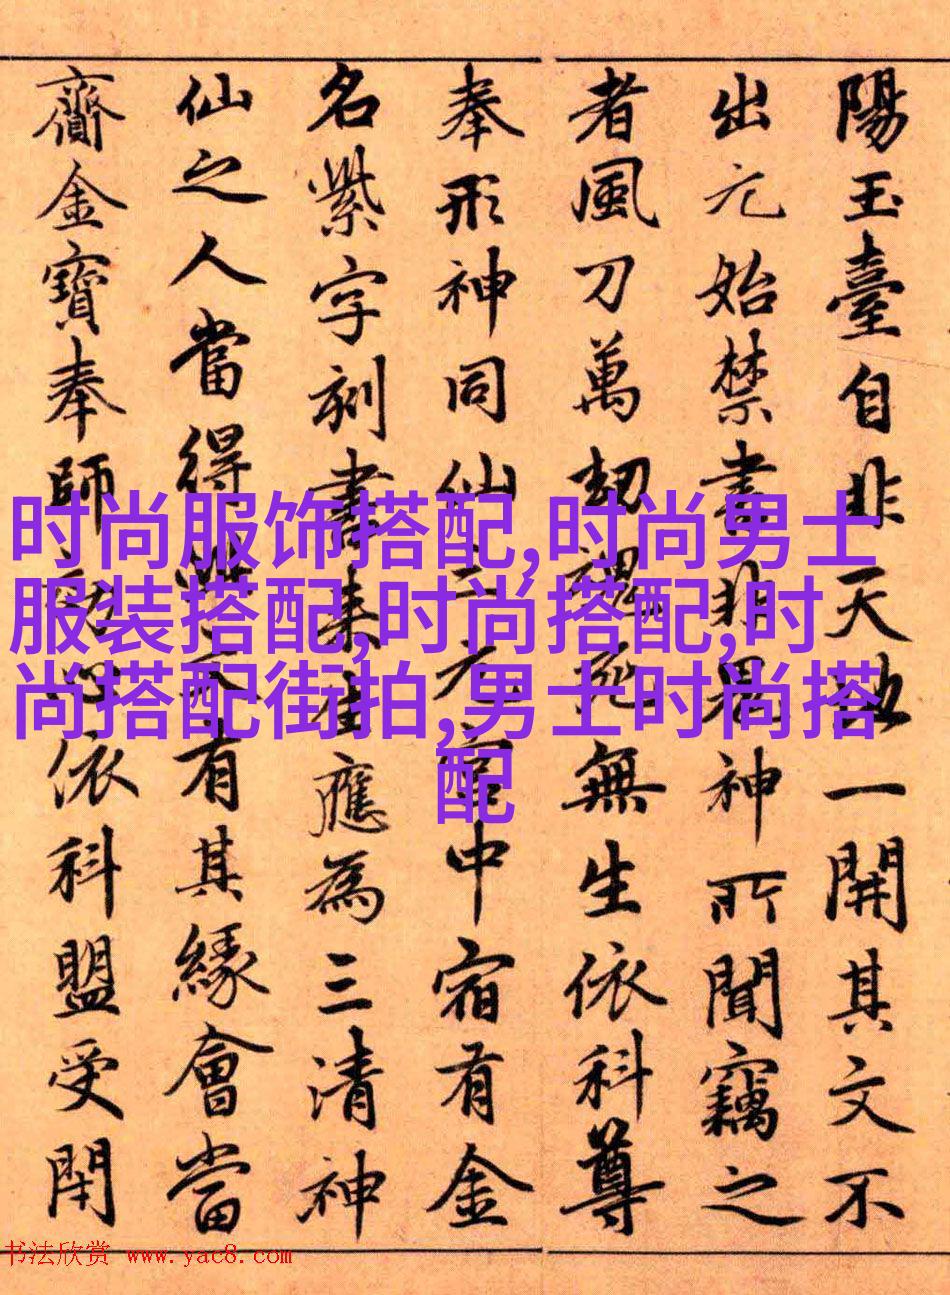 陽玉臺自非天地一開其文不
出元始禁書非鬼神所聞竊之
者風刀萬劫魂死無生依科尊
奉形神同仙三元宮中宿有金
名紫字刻書來生應為三清神
仙之人當得此文有其緣會當
齎金寶奉師心依科盟受閇
时尚服饰搭配,时尚男士
服装搭配,时尚搭配,时
尚搭配街拍,男士时尚搭
配
书法欣赏 www.yac8.com